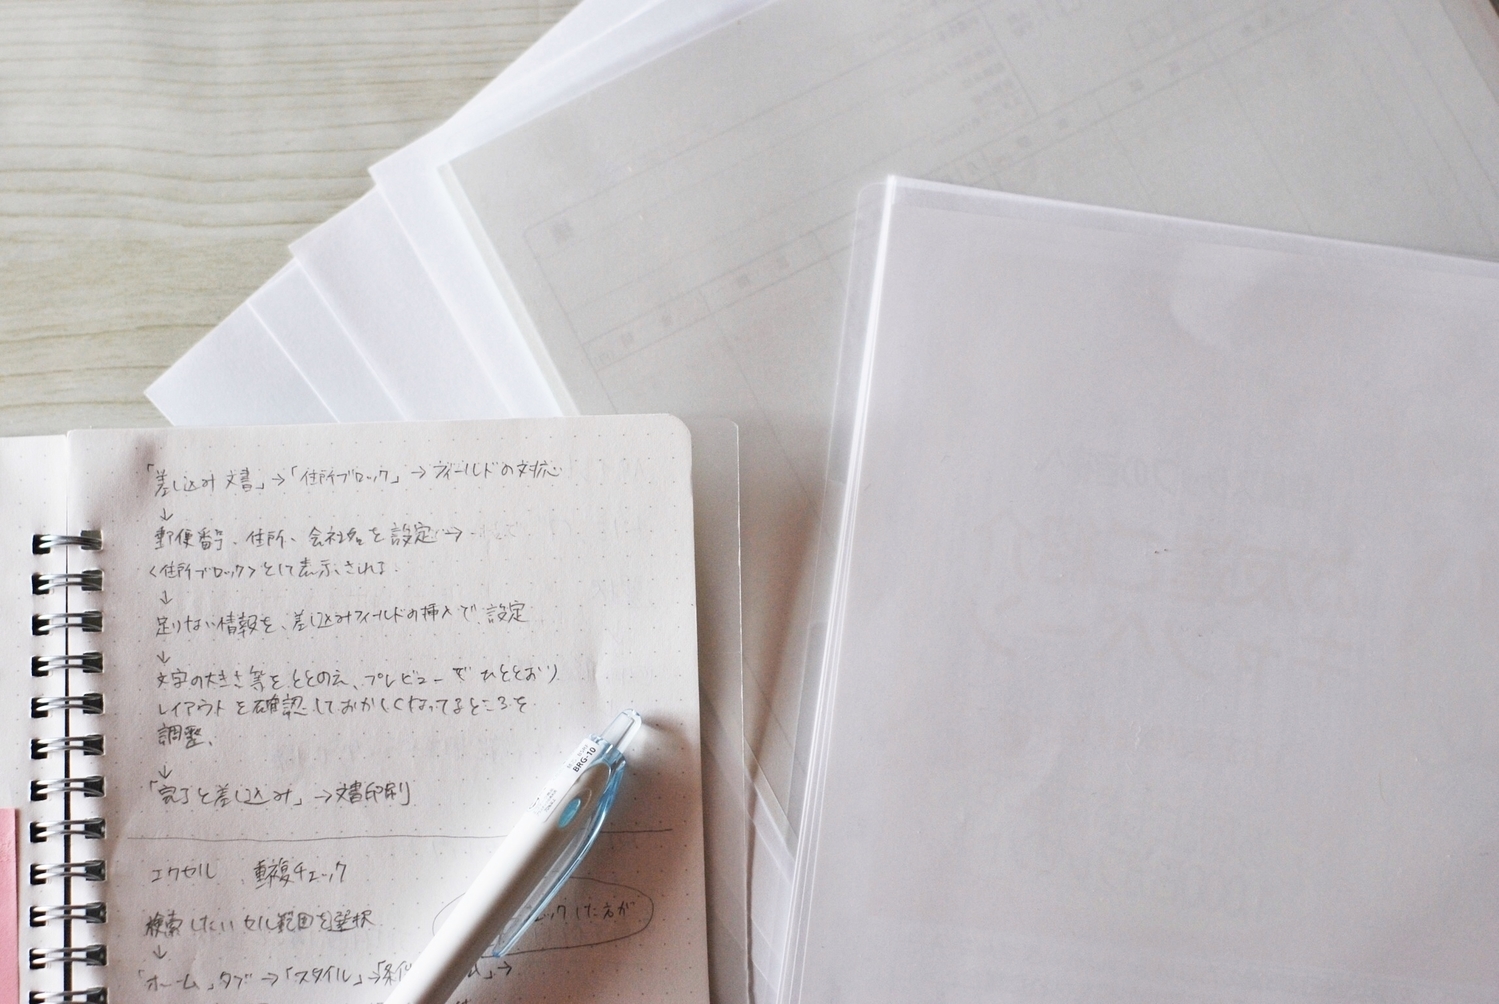 「差し込み文書」→「住所ブロック」→フィールドの対応
↓
郵便番号、住所、会社名を設定→
<住所ブロック>として表示される
↓
足りない情報を、差し込みフィールドの挿入で設定
↓
文字の大きさ等をととのえ、プレビューでひととおり
レイアウトを確認しておかしくなってるところを
調整、
↓
「完了と差し込み」→文書印刷
エクセル 重複チェック
検索したいセル範囲を選択
した方が
↓
「ホーム」タブ→「スタイル」→「条件 」→
BRG-10